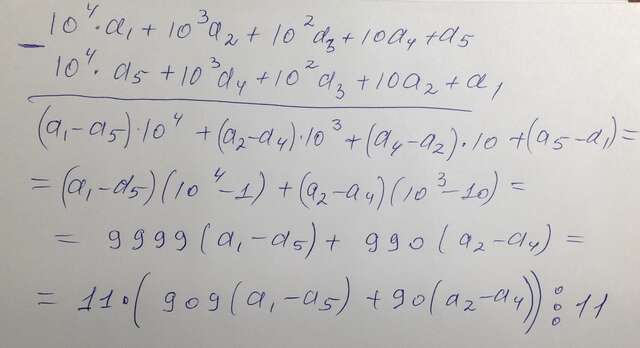 10⁴·a₁ + 10³a₂ + 10²a₃ + 10a₄ + a₅
−
10⁴·a₅ + 10³a₄ + 10²a₃ + 10a₂ + a₁
(a₁−a₅)·10⁴ + (a₂−a₄)·10³ + (a₄−a₂)·10 + (a₅−a₁) =
= (a₁−a₅)(10⁴−1) + (a₂−a₄)(10³−10) =
= 9999(a₁−a₅) + 990(a₂−a₄) =
= 11·(909(a₁−a₅) + 90(a₂−a₄)) ⋮ 11